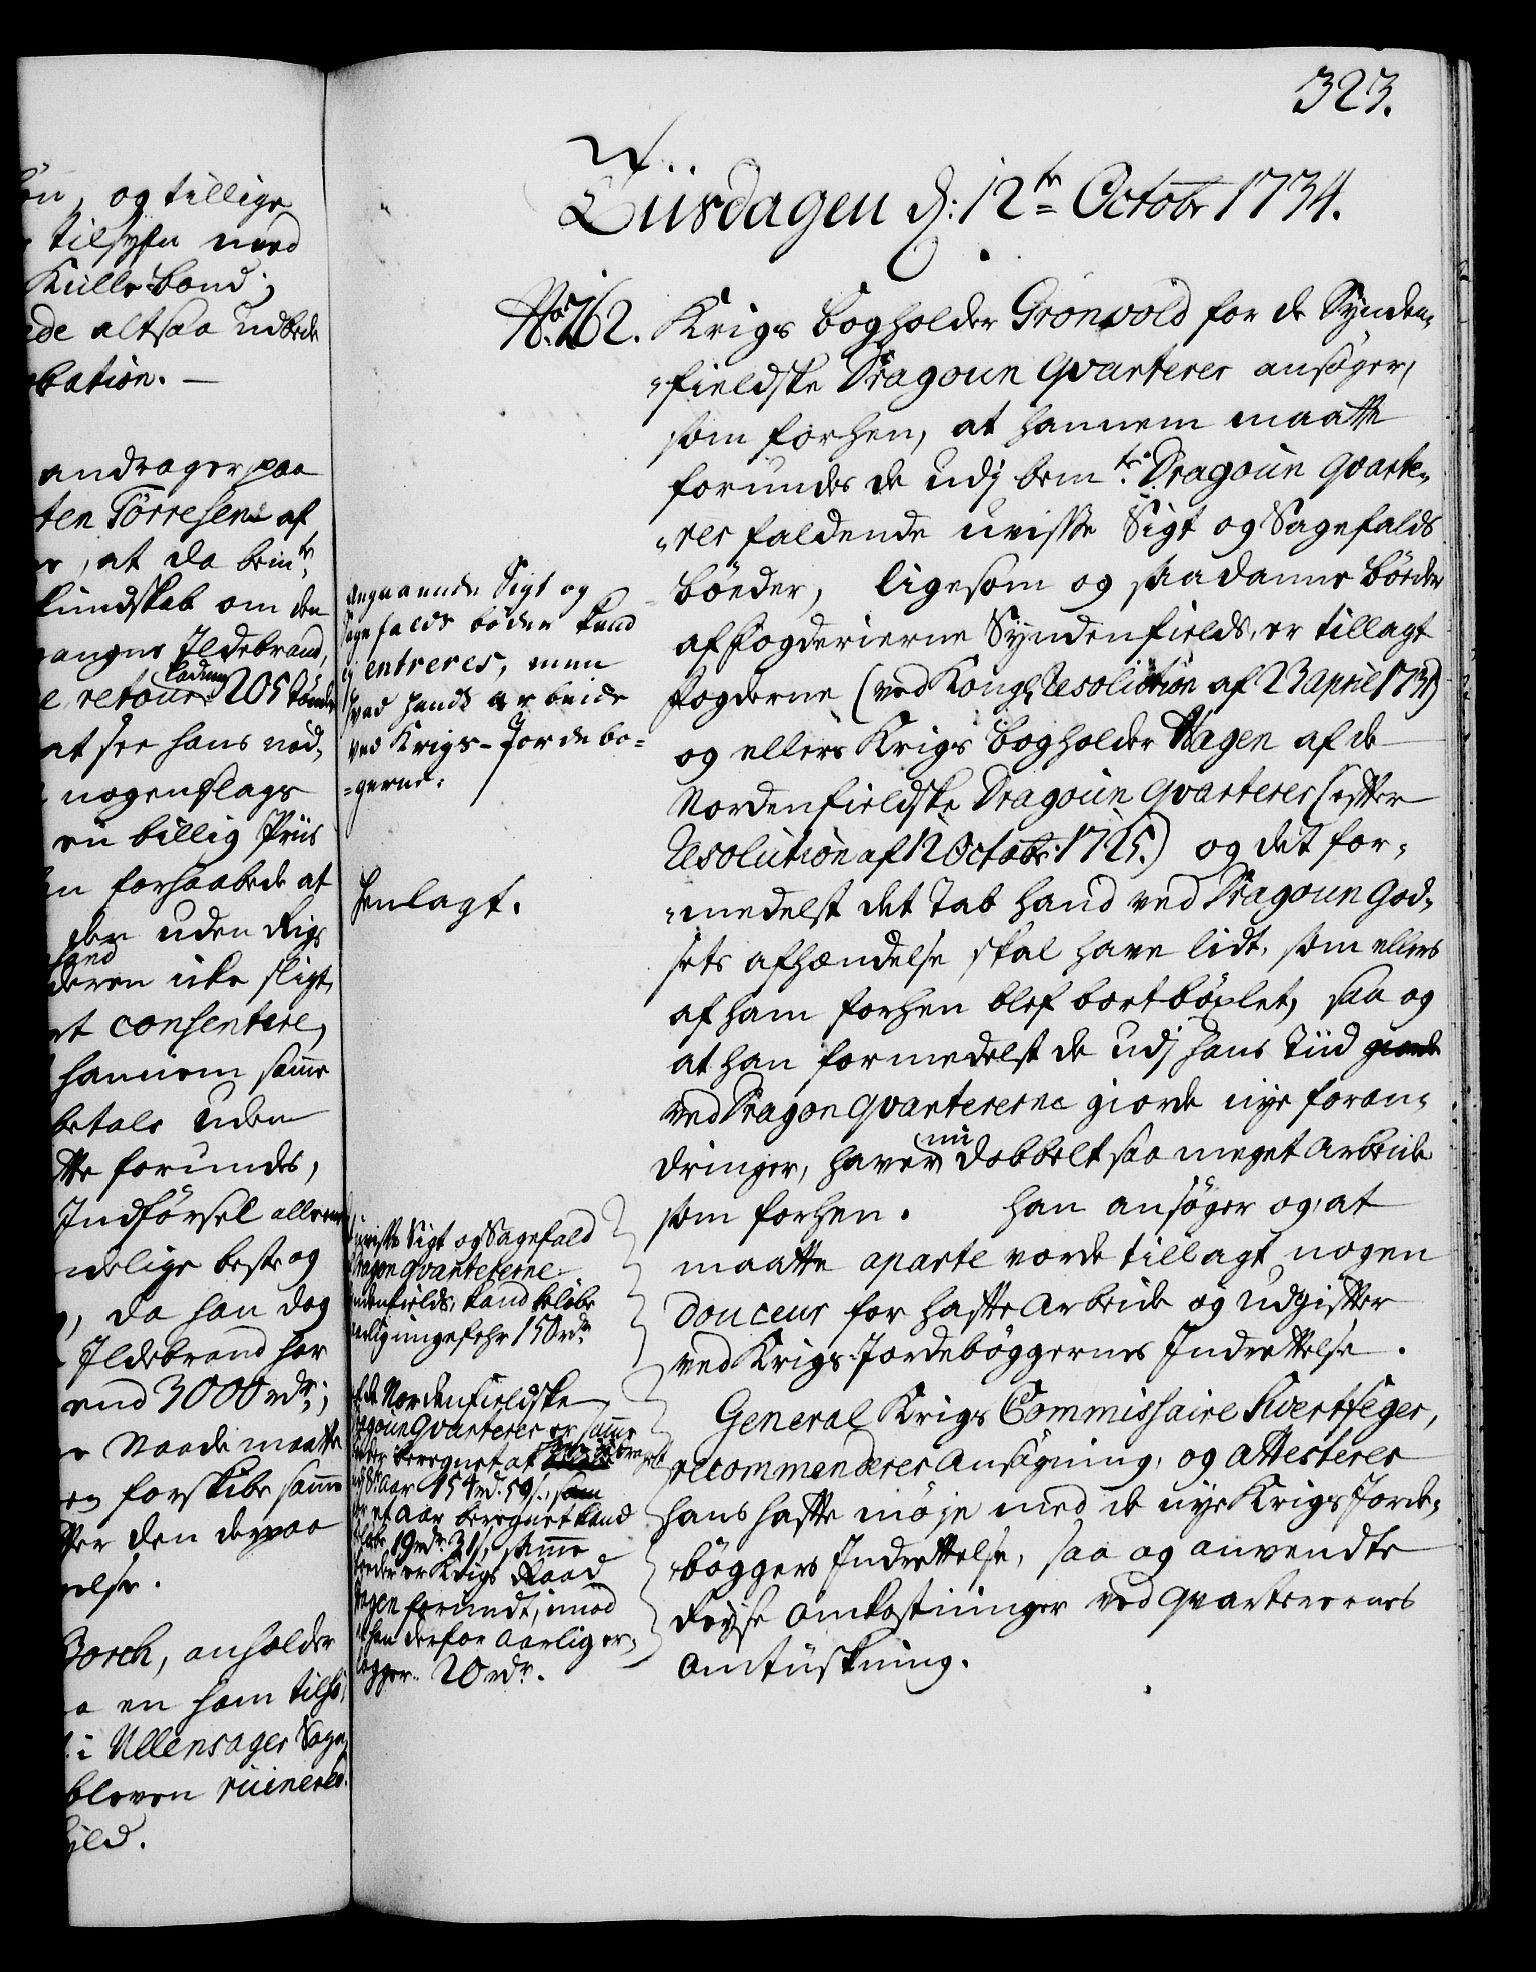 323.
Tiisdagen d: 12te Octobr 1734.
No. 762. Krigs bogholder Grønvold for de Synden-
-fieldske Dragoun Qvarterer ansøger,
som forhen, at hannem maatte
forundes de udj bemte Dragoun Qvarte-
-rer faldende uvisse Sigt og Sagefalds
bøeder, ligesom og saadanne bøeder
af fogderierne Syndenfields, er tillagt
fogderne (ved Kongl. Resolution af 23 april 1731)
og ellers Krigs bogholder Hagen af de
Nordenfieldske Dragoun Qvarterer (efter
Resolution af 12 Octobr: 1725.) og det for-
-medelst det Tab hand ved Dragoun God-
sets afhændelse skal have lidt, som ellers
af ham forhen blef bortbøxlet, saa og
at han formedelst de udj hans Tiid giorde
ved Dragon Qvartererne giorde nye foran-
dringer, haver nu dobbelt saa meget Arbeide
som forhen. han ansøger og, at
maatte aparte vorde tillagt nogen
douceur for hafte Arbeide og udgifter
ved Krigs-Jordebøggernes Indrettelse.
General Krigs Commissaire Svertfeger,
recommenderer Ansøgning, og attesterer
hans hafte møje med de nye Krigs Jorde-
-bøggers Indrettelse, saa og anvendte
Reyse Omkostninger ved Qvarterernes
Omtuskning.
angaaende Sigt og
Sagefalds bøder kand
ej entreres, men
hvad hands arbeide
ved Krigs-Jordebø-
-gerne:
henlagt.
uvisse Sigt og Sagefald
Dragon Qvartererne
Søndenfields, kand beløbe
aarlig ungefehr 150 rdr
af de Nordenfieldske
Dragoun Qvarterer er samme
bøder beregnet at
udj 8te Aar 154 rd: 59 s., som
et Aar beregnet kand
beløbe 19 rdr. 31 s, samme
bøder er Krigs Raad
Hagen forundt, imod
at han derfor Aarlig er-
lægger 20 rdr.
og tillige
tilsyn med
Kulle-bond;
altsaa udbede
-bation.
andrager paa
-ten Torresen af
, at da bemte
kundskab om den
-gangne Ildebrand,
retour Ladning 205 tønder
at see hans nød-
nogenslags
en billig Priis
forhaabede at
der uden Rigs
hand
deren icke sligt
consentere,
hannem samme
betale uden
-tte forundes,
Indførsel allene
-ndelige beste og
, da han dog
Ildebrand har
end 3000 rdr;
Naade maatte
forskibe samme
-tter den derpaa
-else.
Borch, anholder
en ham tilhø-
i Ullensager Sogn,
bleven ruineret.
-yld.